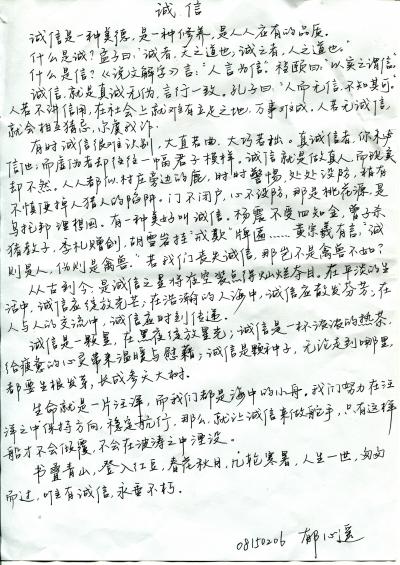 诚信
诚信是一种美德,是一种修养,是人人应有的品质。
什么是诚?孟子曰:“诚者,天之道也;诚之者,人之道也。”
什么是信?《说文解字》言:“人言为信”。程颐曰:“以实之谓信。”
诚信,就是真诚无伪,言行一致。孔子曰:“人而无信,不知其可。”
人若不讲信用,在社会上就难有立足之地,万事难成,人若无诚信,
就会相互猜忌,尔虞我诈。
有时诚信很难认别,大直若曲,大巧若拙。真诚信者,你未必
信他;而虚伪者却往往一幅君子模样。诚信就是做真人,而现实
却不然,人人都似村庄旁边的鹿,时时警惕,处处设防,稍有
不慎便掉入猎人的陷阱。门不闭户,心不设防,那是桃花源,是
乌托邦理想国。有一种美好叫诚信。杨震不受四知金,曾子杀
猪教子,季札赠剑,胡雪岩挂“戒欺”牌匾……黄宗羲有言:“诚
则是人,伪则是禽兽。”若我们丧失诚信,那岂不是禽兽不如?
从古到今,是诚信之星将夜空装点得灿烂夺目,在平淡的生
活中,诚信应绽放光芒;在浩瀚的人海中,诚信应散发芬芳;在
人与人的交流中,诚信应时刻传递。
诚信是一颗星,在黑夜绽放星光;诚信是一杯浓浓的热茶,
给疲惫的心灵带来温暖与慰藉;诚信是颗种子,无论走到哪里,
都要生根发芽,长成参天大树。
生命就是一片汪洋,而我们都是海中的小舟。我们努力在汪
洋之中保持方向,稳定航行,那么,就让诚信来做舵手,只有这样
船才不会倾覆,不会在波涛之中湮没。
书叠青山,登入红豆,春花秋月,几轮寒暑,人生一世,匆匆
而过,唯有诚信,永垂不朽。
08150206 郁心遥